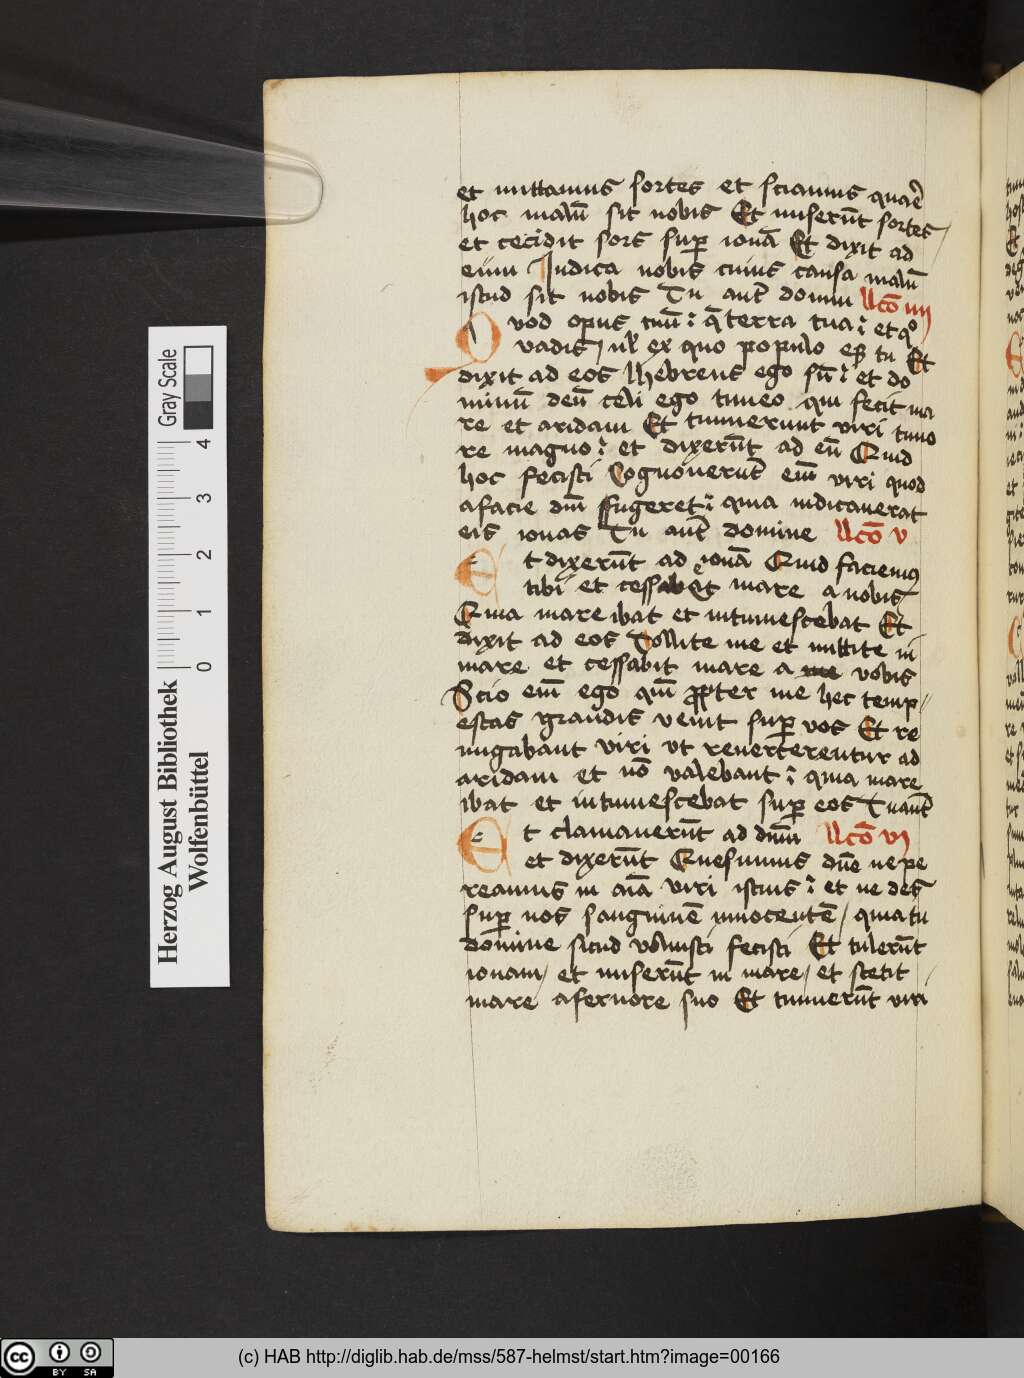 et mittamus sortes et sciamus quare
hoc malū sit nobis Et miserūt sortes
et cecidit sors sup ionā Et dixit ad
eum Indica nobis cuius causa malū
istud sit nobis Tu aut̄ domin llcō iiij
Quod opus tuū : q̄ terra tua : et qo
vadis / ul ex quo populo es tu Et
dixit ad eos Hebreus ego sū : et do
minū deū celi ego timeo qui fecit ma
re et aridam Et timuerunt viri timo
re magno : et dixerūt ad eū Quid
hoc fecisti Cognouerūt eim̄ viri quod
a facie dn̄i fugeret : quia indicauerat
eis ionas Tu aut̄ domine llcō v
Et dixerūt ad ionā Quid faciemꝰ
tibi et cessabit mare a nobis
Quia mare ibat et intumescebat Et
dixit ad eos Tollite me et mittite in
mare et cessabit mare a vobis
Scio eim̄ ego qm̄ propter me hec temp
estas grandis venit sup vos Et re
migabant viri vt reuerterentur ad
aridam et nō valebant : quia mare
ibat et intumescebat sup eos Tu aut̄
Et clamauerūt ad dn̄m llcō vj
et dixerūt Quesumus dn̄e ne pe
reamus in aīa viri istius : et ne des
sup nos sanguinē innocentē / quia tu
domine sicud voluisti fecisti Et tulerūt
ionam / et miserūt in mare / et stetit
mare a feruore suo Et timuerūt viri
Herzog August Bibliothek
Wolfenbüttel
Gray Scale
0 1 2 3 4
cc BY SA
(c) HAB http://diglib.hab.de/mss/587-helmst/start.htm?image=00166